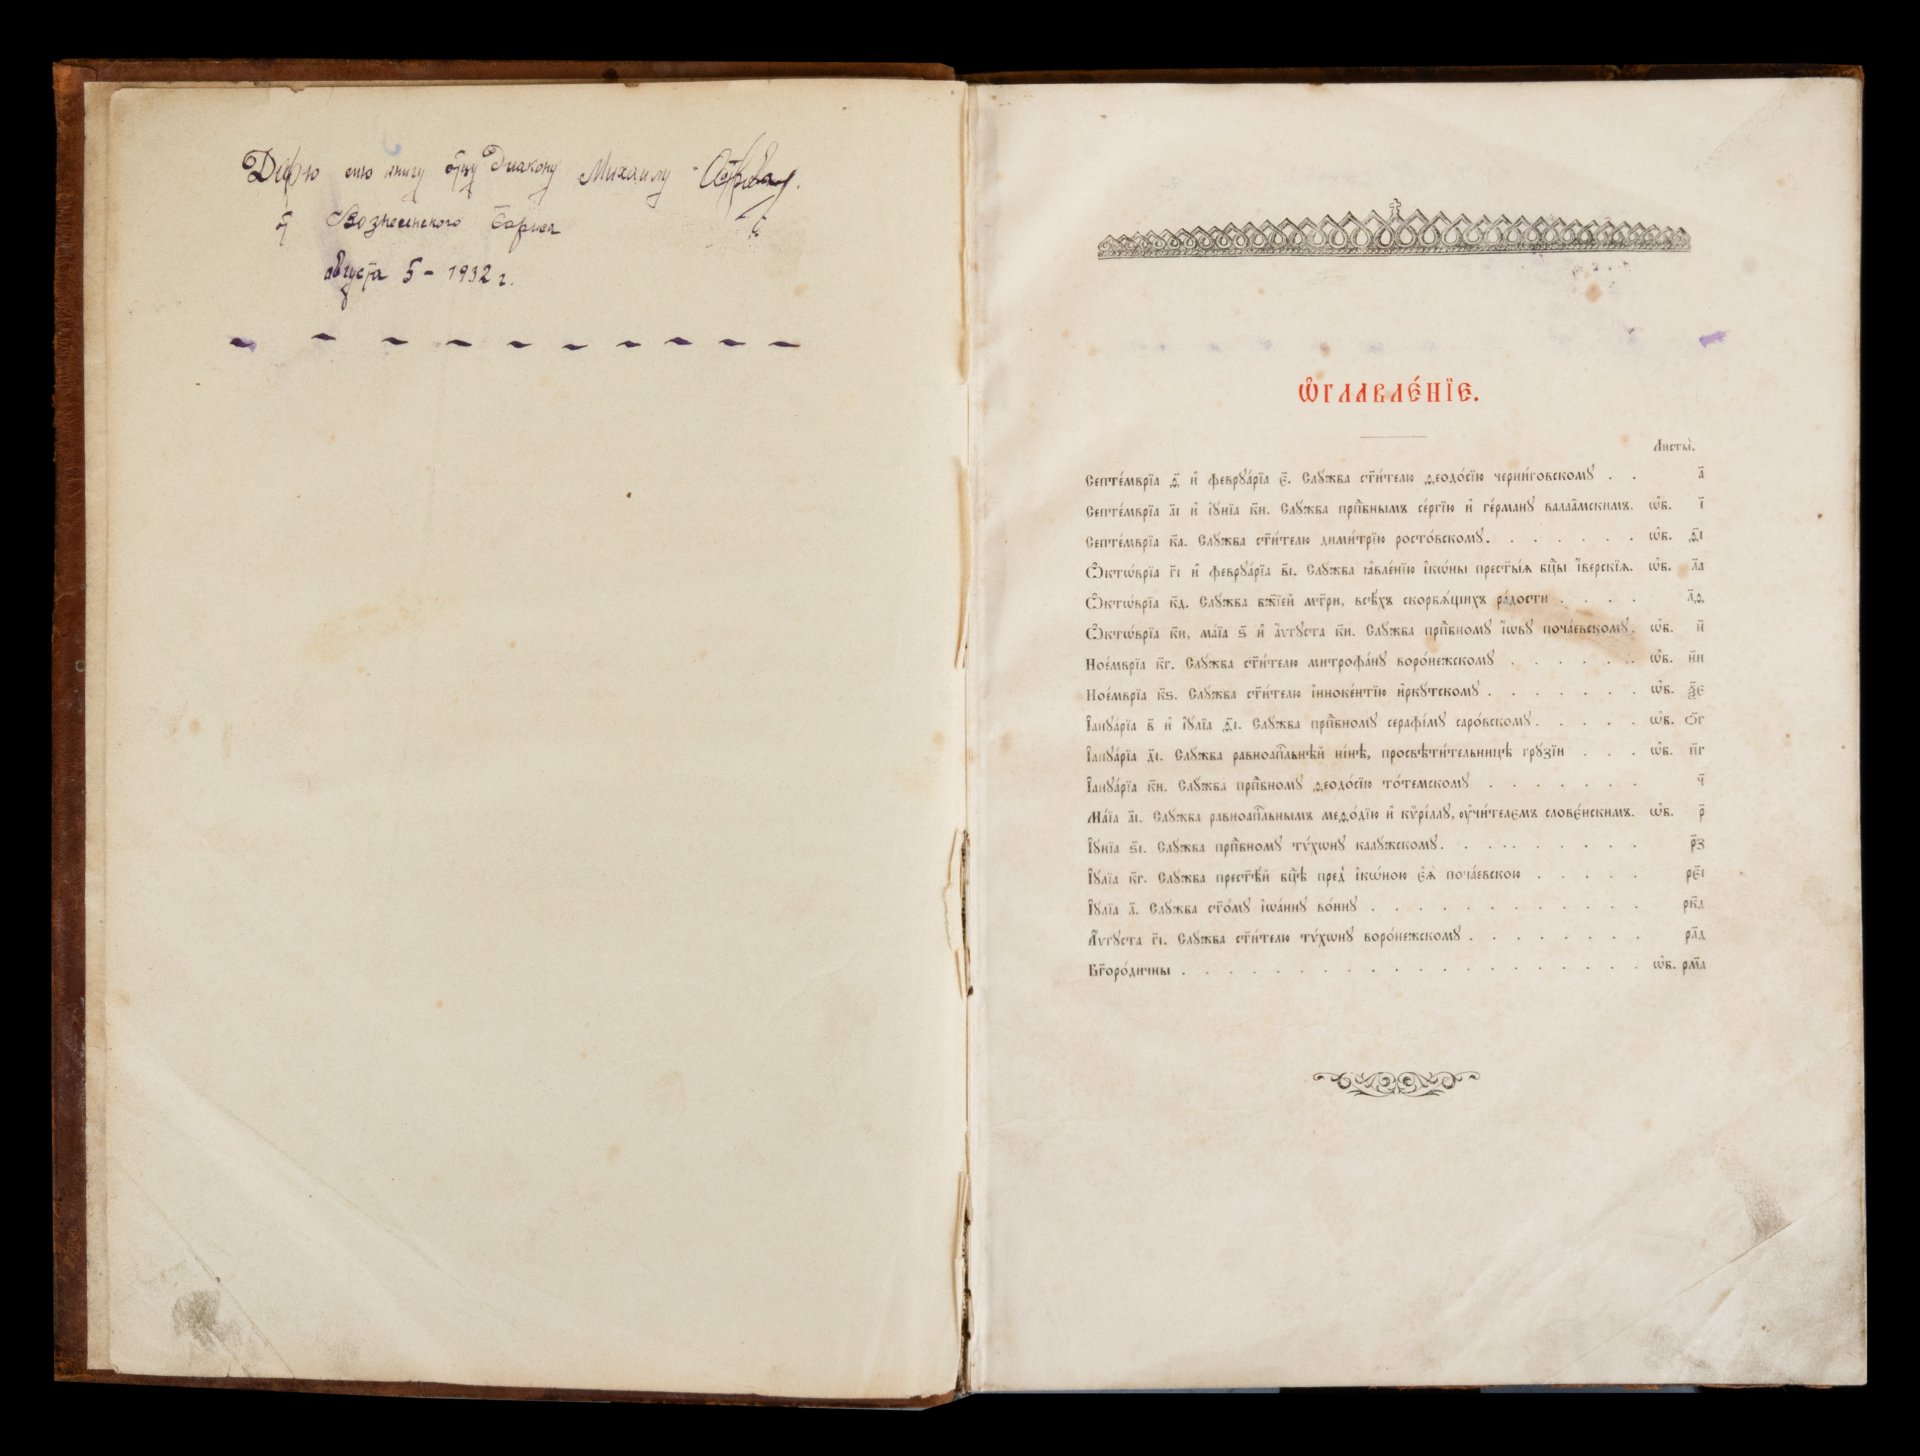 Дарю сию книгу отцу Диакону Михаилу
от Вознесенского Бориса
августа 5 - 1932 г.
Ѡ҆главле́нїе.
Листы̀.
Септе́мврїа ѳ҃ и҆ феврꙋа́рїа є҃. Слꙋжба ст҃и́телю ѳеодо́сїю черни́говскомꙋ . . а҃
Септе́мврїа а҃і и҆ і҆ꙋнїа к҃и. Слꙋжба прпⷣбнымъ се́ргїю и҆ ге́рманꙋ валаа́мскимъ. ѡ҆б. і҃
Септе́мврїа к҃а. Слꙋжба ст҃и́телю дими́трїю росто́вскомꙋ. . . . . . . ѡ҆б. ѳ҃і
Ѻ҆ктѡ́врїа г҃і и҆ феврꙋа́рїа в҃і. Слꙋжба ꙗ҆вле́нїю і҆кѡ́ны прест҃ы́ѧ бцⷣы и҆́верскїѧ. ѡ҆б. л҃а
Ѻ҆ктѡ́врїа к҃д. Слꙋжба бж҃їей мт҃ри, всѣ́хъ скорбѧ́щихъ ра́дости . . . . л҃ѳ
Ѻ҆ктѡ́врїа к҃и, ма́їа ѕ҃ и҆ а҆́ѵгꙋста к҃и. Слꙋжба прпⷣбномꙋ і҆́ѡвꙋ поча́евскомꙋ. ѡ҆б. н҃
Ное́мврїа к҃г. Слꙋжба ст҃и́телю митрофа́нꙋ воро́нежскомꙋ . . . . . . ѡ҆б. н҃и
Ное́мврїа к҃ѕ. Слꙋжба ст҃и́телю і҆нноке́нтїю и҆ркꙋтскомꙋ . . . . . . . ѡ҆б. ѯ҃є
І҆аннꙋа́рїа в҃ и҆ і҆ꙋлїа ѳ҃і. Слꙋжба прпⷣбномꙋ серафі́мꙋ саро́вскомꙋ. . . . . ѡ҆б. о҃г
І҆аннꙋа́рїа д҃і. Слꙋжба равноапⷭ҇льнѣй ні́нѣ, просвѣти́тельницѣ грꙋзїи . . . ѡ҆б. п҃г
І҆аннꙋа́рїа к҃и. Слꙋжба прпⷣбномꙋ ѳеодо́сїю то́темскомꙋ . . . . . . . ч҃
Ма́їа а҃і. Слꙋжба равноапⷭ҇льнымъ меѳо́дїю и҆ кѷрі́ллꙋ, ᲂу҆чи́телємъ слове́нскимъ. ѡ҆б. р҃
І҆ꙋнїа ѕ҃і. Слꙋжба прпⷣбномꙋ тѵ́хѡнꙋ калꙋжскомꙋ. . . . . . . . . р҃з
І҆ꙋлїа к҃г. Слꙋжба прест҃ѣ́й бцⷣѣ пред̾ і҆кѡ́ною є҆ѧ̀ поча́евскою . . . . . рє҃і
І҆ꙋлїа л҃. Слꙋжба ст҃о́мꙋ і҆ѡа́ннꙋ во́инꙋ . . . . . . . . . . . . рк҃д
А҆́ѵгꙋста г҃і. Слꙋжба ст҃и́телю тѵ́хѡнꙋ воро́нежскомꙋ . . . . . . . . рл҃д
Бг҃оро́дичны . . . . . . . . . . . . . . . . . . . . ѡ҆б. рм҃а